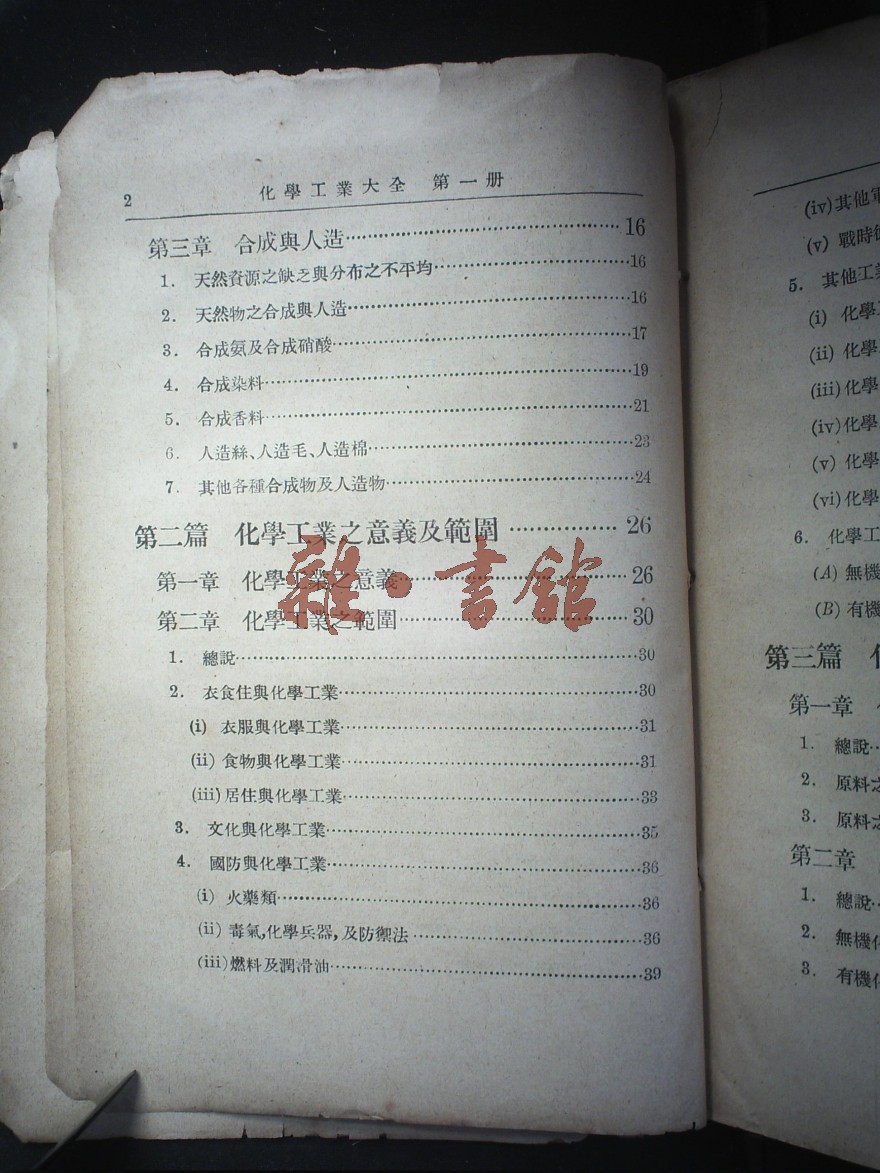 2 化學工業大全 第一册
第三章 合成與人造……16
1. 天然資源之缺乏與分布之不平均……16
2. 天然物之合成與人造……16
3. 合成氨及合成硝酸……17
4. 合成染料……19
5. 合成香料……21
6. 人造絲、人造毛、人造棉……23
7. 其他各種合成物及人造物……24
第二篇 化學工業之意義及範圍……26
第一章 化學工業之意義……26
第二章 化學工業之範圍……30
1. 總說……30
2. 衣食住與化學工業……30
(i) 衣服與化學工業……31
(ii) 食物與化學工業……31
(iii) 居住與化學工業……33
3. 文化與化學工業……35
4. 國防與化學工業……36
(i) 火藥類……36
(ii) 毒氣,化學兵器,及防禦法……36
(iii) 燃料及潤滑油……39
雜·書館
(iv) 其他
(v) 戰時
5. 其他工
(i) 化學
(ii) 化學
(iii) 化學
(iv) 化學
(v) 化學
(vi) 化學
6. 化學工
(A) 無機
(B) 有機
第三篇
第一章
1. 總說
2. 原料
3. 原料
第二章
1. 總說
2. 無機
3. 有機